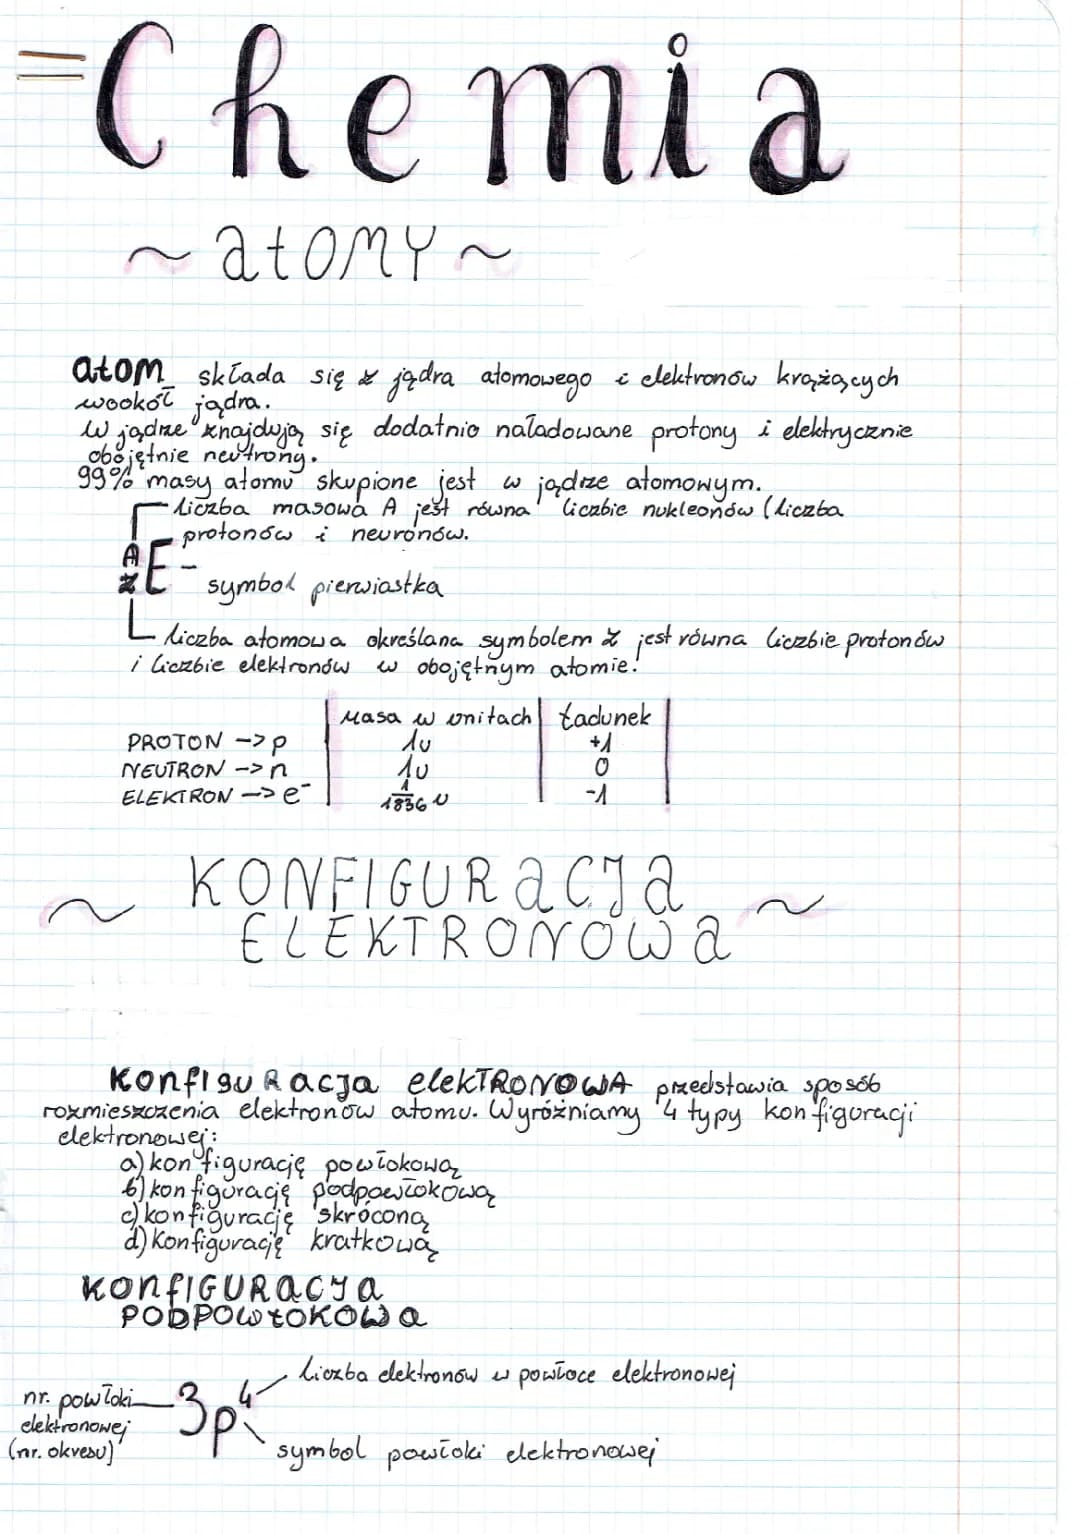 Chemia
~ atomy ~
atom składa się z jądra atomowego i elektronów krążących
wookół jądra.
W jądrze znajdują się dodatnio naładowane protony i elektrycznie
obojętnie neutrony.
99% masy atomu skupione jest w jądrze atomowym.
liczba masowa A jest równa liczbie nukleonów (liczba
protonów i neuronów.
A
Z E - symbol pierwiastka
liczba atomowa określana symbolem Z jest równa liczbie protonów
i liczbie elektronów w obojętnym atomie.
Masa w unitach Ładunek
PROTON -> p 1u +1
NEUTRON -> n 1u 0
ELEKTRON -> e⁻ 1/1836 u -1
~ KONFIGURACJA ~
ELEKTRONOWA
KONFIGURACJA ELEKTRONOWA przedstawia sposób
rozmieszczenia elektronów atomu. Wyróżniamy 4 typy konfiguracji
elektronowej:
a) konfigurację powłokową
b) konfigurację podpowłokową
c) konfigurację skróconą
d) Konfigurację kratkową
KONFIGURACJA
PODPOWŁOKOWA
liczba elektronów w powłoce elektronowej
nr. powłoki 3p⁴
elektronowej
(nr. okresu)
symbol powłoki elektronowej